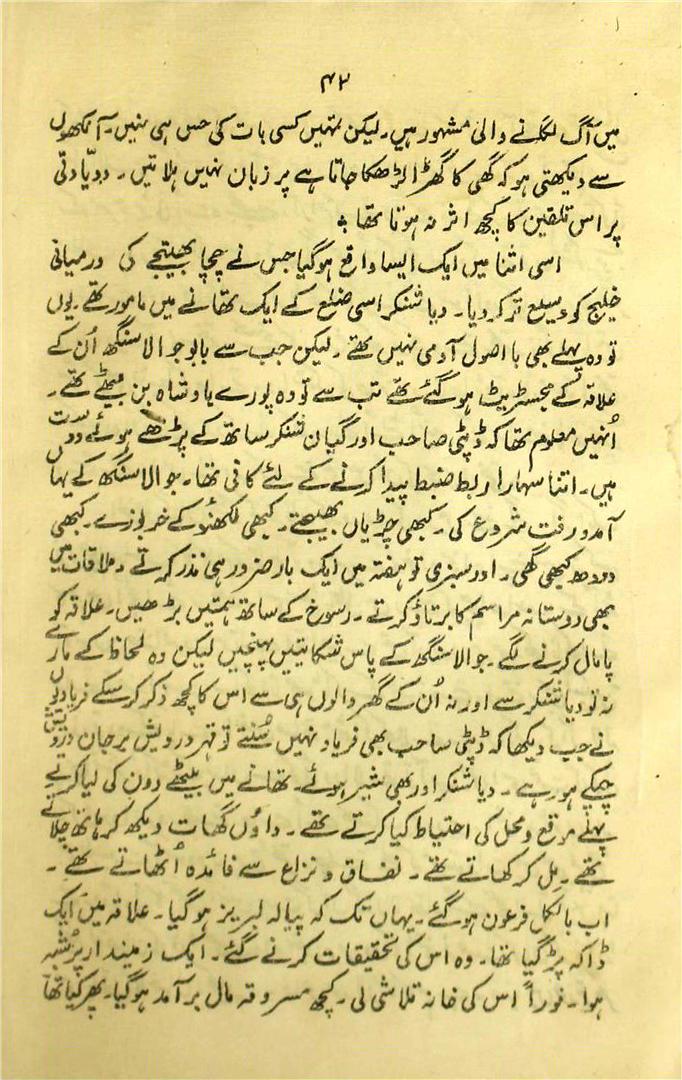 ۴۲
میں آگ لگانے والی مشہور ہیں۔ لیکن تمہیں کسی بات کی حس ہی نہیں۔ آنکھوں
سے دیکھتی ہو کہ گھی کا گھڑا لڑھکا جاتا ہے پر زبان نہیں ہلاتیں۔ ودیاوتی
پر اس تلقین کا کچھ اثر نہ ہوتا تھا ؛
اسی اثنا میں ایک ایسا واقع ہوگیا جس نے چچا بھتیجے کی درمیانی
خلیج کو وسیع تر کر دیا۔ دیا شنکر اسی ضلع کے ایک تھانے میں مامور تھے۔ یوں
تو وہ پہلے بھی با اصول آدمی نہیں تھے۔ لیکن جب سے بابو جوالا سنگھ اُن کے
علاقہ کے مجسٹریٹ ہو گئے تھے تب سے تو وہ پورے بادشاہ بن بیٹھے تھے۔
اُنہیں معلوم تھا کہ ڈپٹی صاحب اور گیان شنکر ساتھ کے پڑھے ہوئے دوست
ہیں۔ اتنا سہارا ربط ضبط پیدا کرنے کے لئے کافی تھا۔ جوالا سنگھ کے یہاں
آمد و رفت شروع کی۔ کبھی چڑیاں بھیجتے۔ کبھی لکھنؤ کے خربوزے۔ کبھی
دودھ کبھی گھی۔ اور سبزی تو ہفتہ میں ایک بار ضرور ہی نذر کرتے۔ ملاقات میں
بھی دوستانہ مراسم کا برتاؤ کرتے۔ رسوخ کے ساتھ ہمتیں بڑھیں۔ علاقہ کو
پامال کرنے لگے۔ جوالا سنگھ کے پاس شکایتیں پہنچیں لیکن وہ لحاظ کے مارے
نہ تو دیا شنکر سے اور نہ اُن کے گھر والوں ہی سے اس کا کچھ ذکر کر سکے فریادیوں
نے جب دیکھا کہ ڈپٹی صاحب بھی فریاد نہیں سُنتے تو قہر درویش برجان درویش
چپکے ہو رہے۔ دیا شنکر اور بھی شیر ہوئے۔ تھانے میں بیٹھے دون کی لیا کرتے
پہلے موقع و محل کی احتیاط کیا کرتے تھے۔ داؤں گھات دیکھ کر ہاتھ چلاتے
تھے۔ مل کر کھاتے تھے۔ نفاق و نزاع سے فائدہ اُٹھاتے تھے۔
اب بالکل فرعون ہو گئے۔ یہاں تک کہ پیالہ لبریز ہو گیا۔ علاقہ میں ایک
ڈاکہ پڑ گیا تھا۔ وہ اس کی تحقیقات کرنے گئے۔ ایک زمیندار پر شبہ
ہوا۔ فوراً اس کی خانہ تلاشی لی۔ کچھ مسروقہ مال برآمد ہو گیا۔ پھر کیا تھا